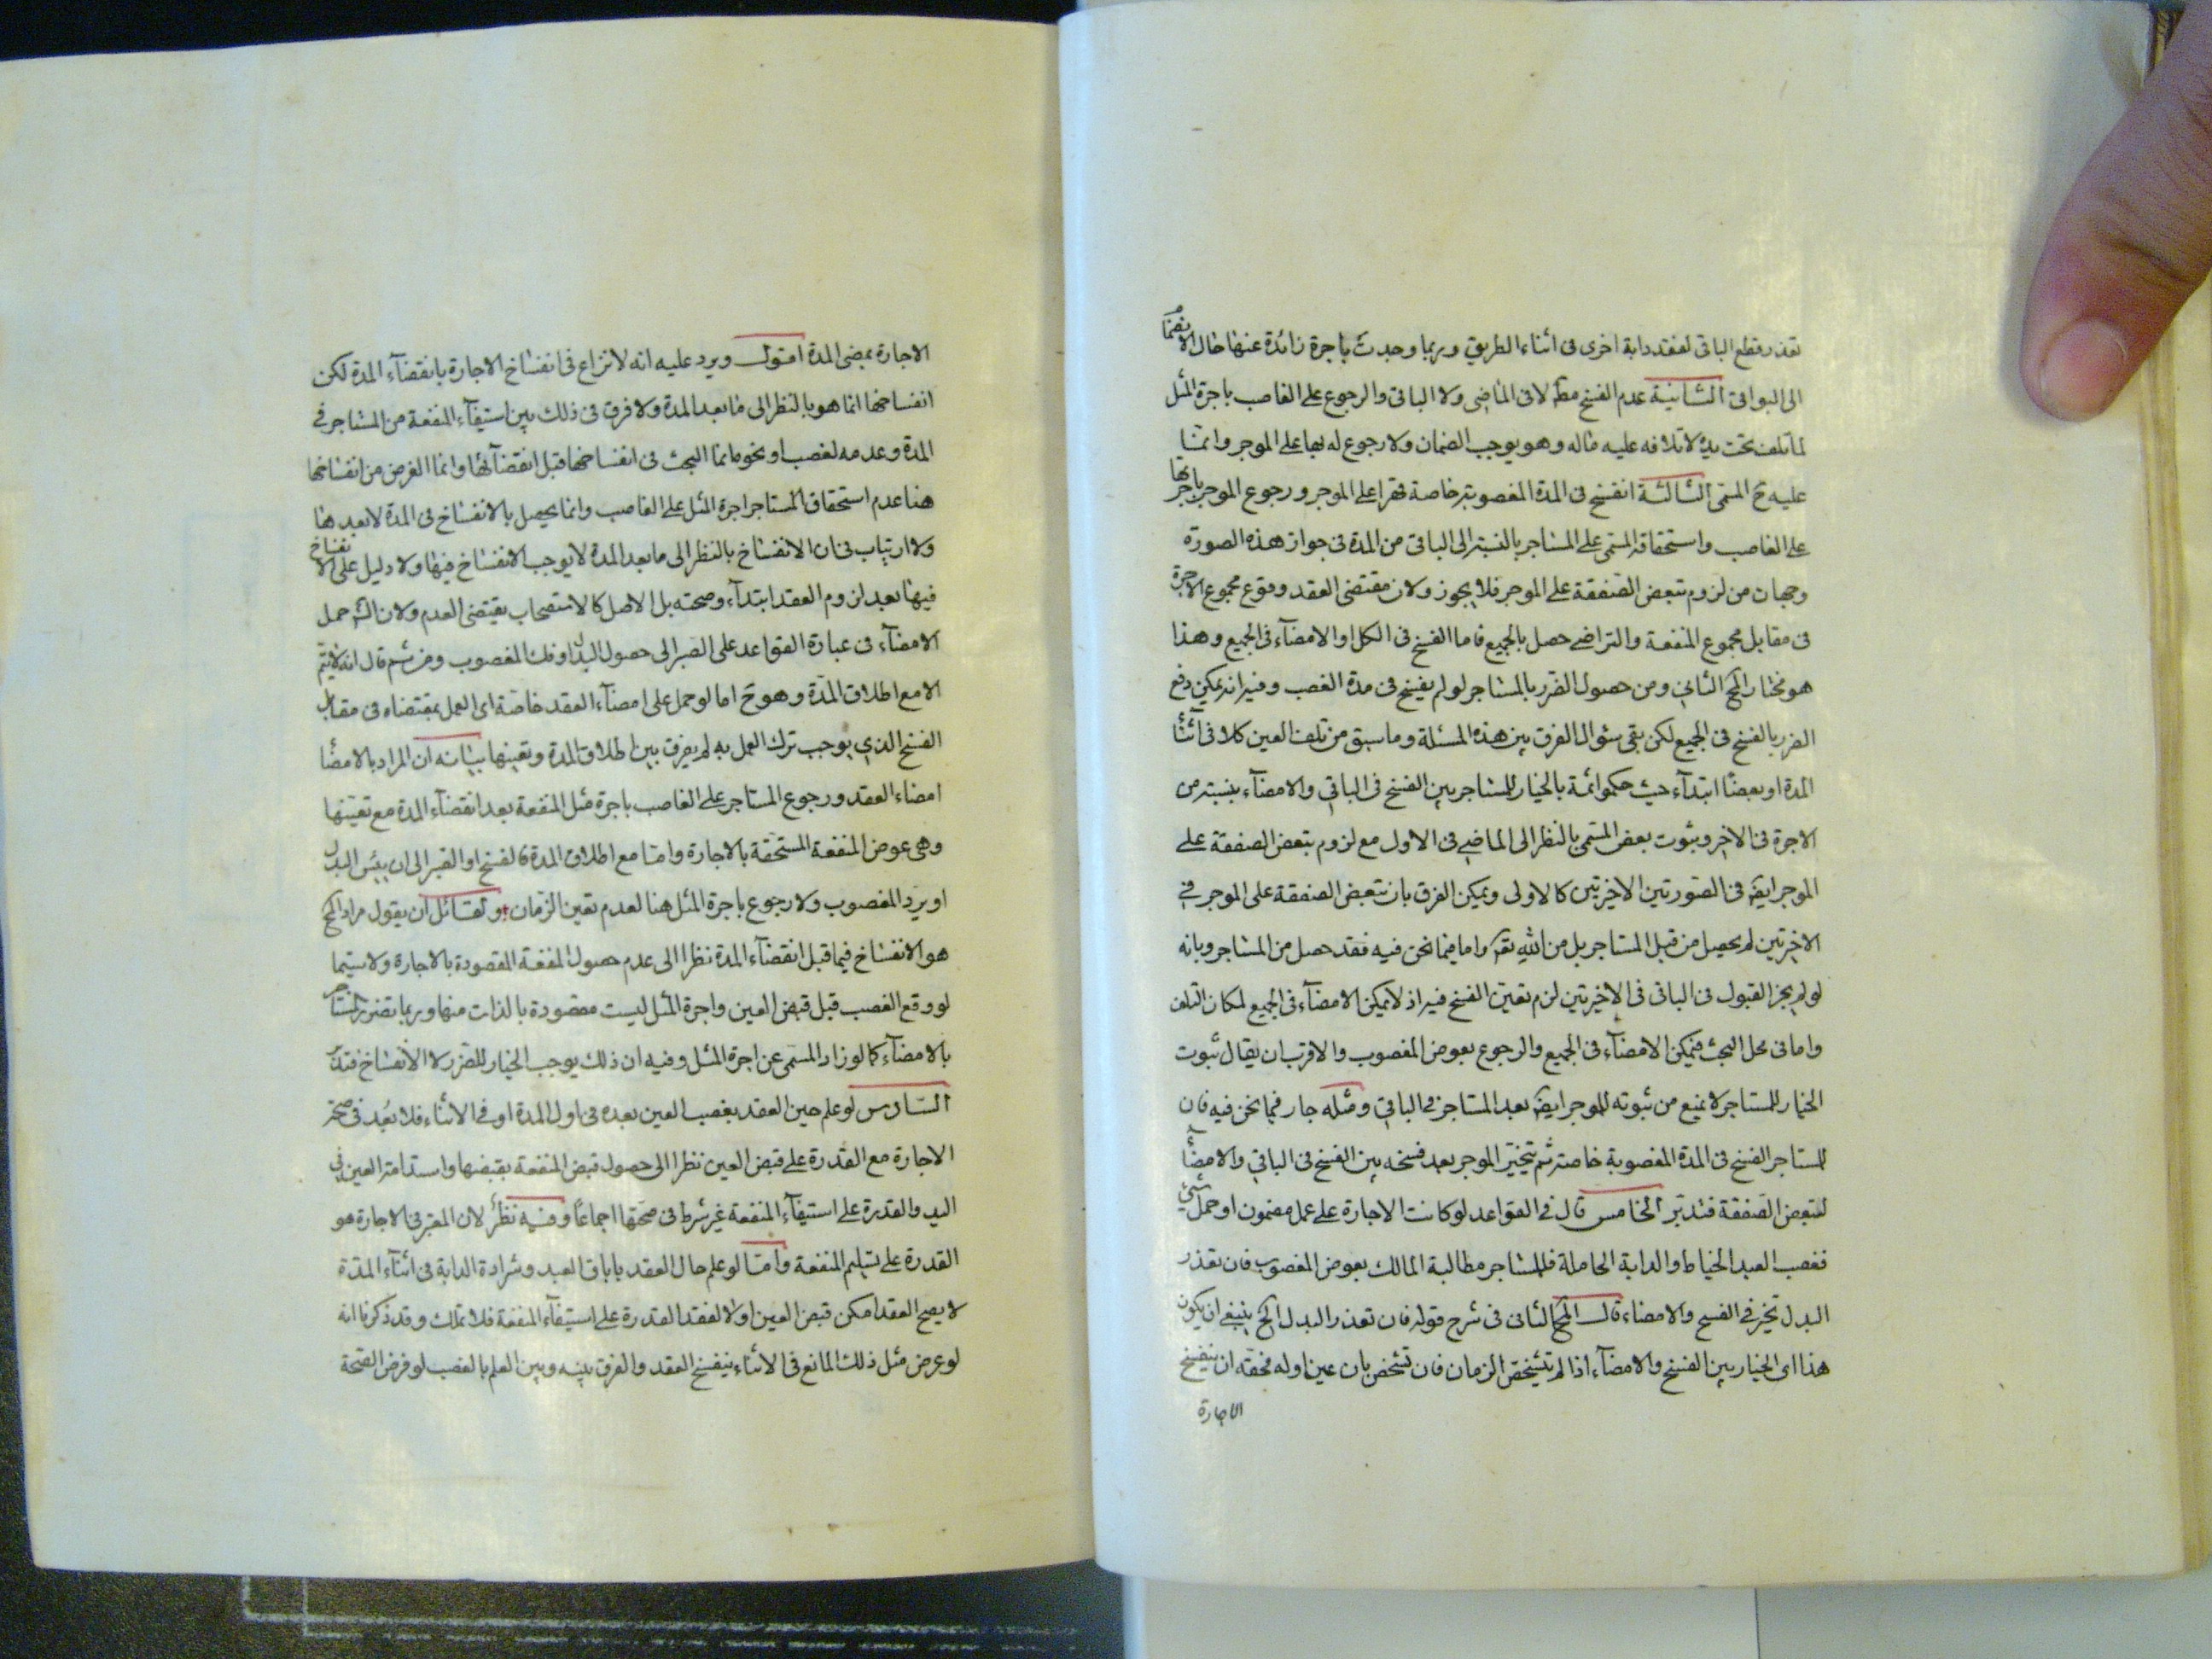 تعذر قطع الباقى لفقد دابة اخرى فى اثناء الطريق وربما وجدت باجرة زائدة عنها حال الانضمام
الى البواقى الثانية عدم الفسخ مط لا فى الماضى ولا الباقى والرجوع على الغاصب باجرة المثل
لما تلف تحت يده لاتلافه عليه ماله وهو يوجب الضمان ولا رجوع له بها على الموجر وانما
عليه ح المسمى الثالثة انفسخ فى المدة المغصوبة خاصة قهرا على الموجر ورجوع الموجر باجرتها
على الغاصب واستحقاقه المسمى على المستاجر بالنسبة الى الباقى من المدة فى جواز هذه الصورة
وجهان من لزوم تبعض الصفقة على الموجر فلا يجوز ولان مقتضى العقد وقوع مجموع الاجرة
فى مقابل مجموع المنفعة والتراضى حصل بالجميع فاما الفسخ فى الكل او الامضآء فى الجميع وهذا
هو مختار المحقق الثانى ومن حصول الضرر بالمستاجر لو لم يفسخ فى مدة الغصب وفيه انه يمكن دفع
الضرر بالفسخ فى الجميع لكن بقى سئوال الفرق بين هذه المسئلة وما سبق من تلف العين كلا فى اثنآء
المدة او بعضا ابتدآء حيث حكموا ثمة بالخيار للمستاجر بين الفسخ فى الباقى والامضآء بنسبته من
الاجرة فى الاخير وبثوت بعض المسمى بالنظر الى الماضى فى الاول مع لزوم تبعض الصفقة على
الموجر ايضا فى الصورتين الاخيرتين كالاولى ويمكن الفرق بان تبعض الصفقة على الموجر فى
الاخرتين لم يحصل من قبل المستاجر بل من الله تعه واما فيما نحن فيه فقد حصل من المستاجر وبانه
لو لم يجز القبول فى الباقى فى الاخيرتين لزم تعين الفسخ فيه اذ لا يمكن الامضآء فى الجميع لمكان التلف
واما فى محل البحث فيمكن الامضآء فى الجميع والرجوع بعوض المغصوب والاقرب ان يقال ثبوت
الخيار للمستاجر لا يمنع من ثبوته للموجر ايضا بعد المستاجر فى الباقى ومثله جار فيما نحن فيه فان
للمستاجر الفسخ فى المدة المغصوبة خاصة ثم يتخير الموجر بعد فسخه بين الفسخ فى الباقى والامضآء
لتبعض الصفقة فتدبر الخامس قال فى القواعد لو كانت الاجارة على عمل مضمون او حمل شئ
فغصب العبد الخياط والدابة الحاملة فللمستاجر مطالبة المالك بعوض المغصوب فان تعذر
البدل تخير فى الفسخ والامضاء قال المحقق الثانى فى شرح قوله فان تعذر البدل الخ ينبغى ان يكون
هذا اى الخيار بين الفسخ والامضآء اذا لم يتشخص الزمان فان تشخص بان عين اوله فحقه ان ينفسخ
الاجارة
الاجارة بمضى المدة اقول ويرد عليه انه لا نزاع فى انفساخ الاجارة بانقضآء المدة لكن
انفساخها انما هو بالنظر الى ما بعد المدة ولا فرق فى ذلك بين استيفآء المنفعة من المستاجر فى
المدة وعدمه لغصب او نحوه انما البحث فى انفساخها قبل انقضآئها وانما الغرض من انفساخها
هنا عدم استحقاق المستاجر اجرة المثل على الغاصب وانما يحصل بالانفساخ فى المدة لا بعدها
ولا ارتياب فى ان الانفساخ بالنظر الى ما بعد المدة لا يوجب الانفساخ فيها ولا دليل على الانفساخ
فيها بعد لزوم العقد ابتدآء وصحته بل الاصل كالاستصحاب يقتضى العدم ولان الش حمل
الامضآء فى عبارة القواعد على الصبر الى حصول البدل او فك المغصوب ومن ثم قال انه لا يتم
الا مع اطلاق المدة وهو ح اما لو حمل على امضآء العقد خاصة اى العمل بمقتضاه فى مقابل
الفسخ الذى يوجب ترك العمل به لم يفرق بين اطلاق المدة وتعينها بيانه ان المراد بالامضآء
امضاء العقد ورجوع المستاجر على الغاصب باجرة مثل المنفعة بعد انقضآء المدة مع تعينها
وهى عوض المنفعة المستحقة بالاجارة واما مع اطلاق المدة فالفسخ او الصبر الى ان ييئس البدل
او يرد المغصوب ولا رجوع باجرة المثل هنا لعدم تعين الزمان ولقائل ان يقول مراد المحقق
هو الانفساخ فيما قبل انقضآء المدة نظرا الى عدم حصول المنفعة المقصودة بالاجارة ولا سيما
لو وقع الغصب قبل قبض العين واجرة المثل ليست مقصودة بالذات منها وربما تضرر المستاجر
بالامضآء كما لو زاد المسمى عن اجرة المثل وفيه ان ذلك يوجب الخيار للضرر لا الانفساخ فتدبر
السادس لو علم حين العقد بغصب العين بعده فى اول المدة او فى الاثناء فلا بعد فى صحة
الاجارة مع القدرة على قبض العين نظرا الى حصول قبض المنفعة بقبضها واستدامة العين فى
اليد والقدرة على استيفآء المنفعة غير شرط فى صحتها اجماعا وفيه نظر لان المعتبر فى الاجارة هو
القدرة على تسليم المنفعة واما لو علم حال العقد باباق العبد وشرادة الدابة فى اثنآء المدة
لا يصح العقد امكن قبض العين اولا لفقد القدرة على استيفآء المنفعة فلا تملك وقد ذكرنا انه
لو عرض مثل ذلك المانع فى الاثناء ينفسخ العقد والفرق بينه وبين العلم بالغصب لو فرض الصحة